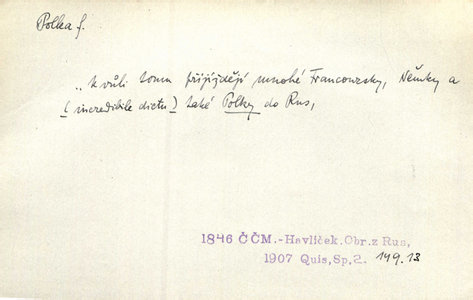 Polka f.
„k vůli tomu přijíždějí mnohé Francouzsky, Němky a
(incredibile dictu) také Polky do Rus,
1846 ČČM.-Havlíček.Obr.z Rus,
1907 Quis,Sp,2. 149.13